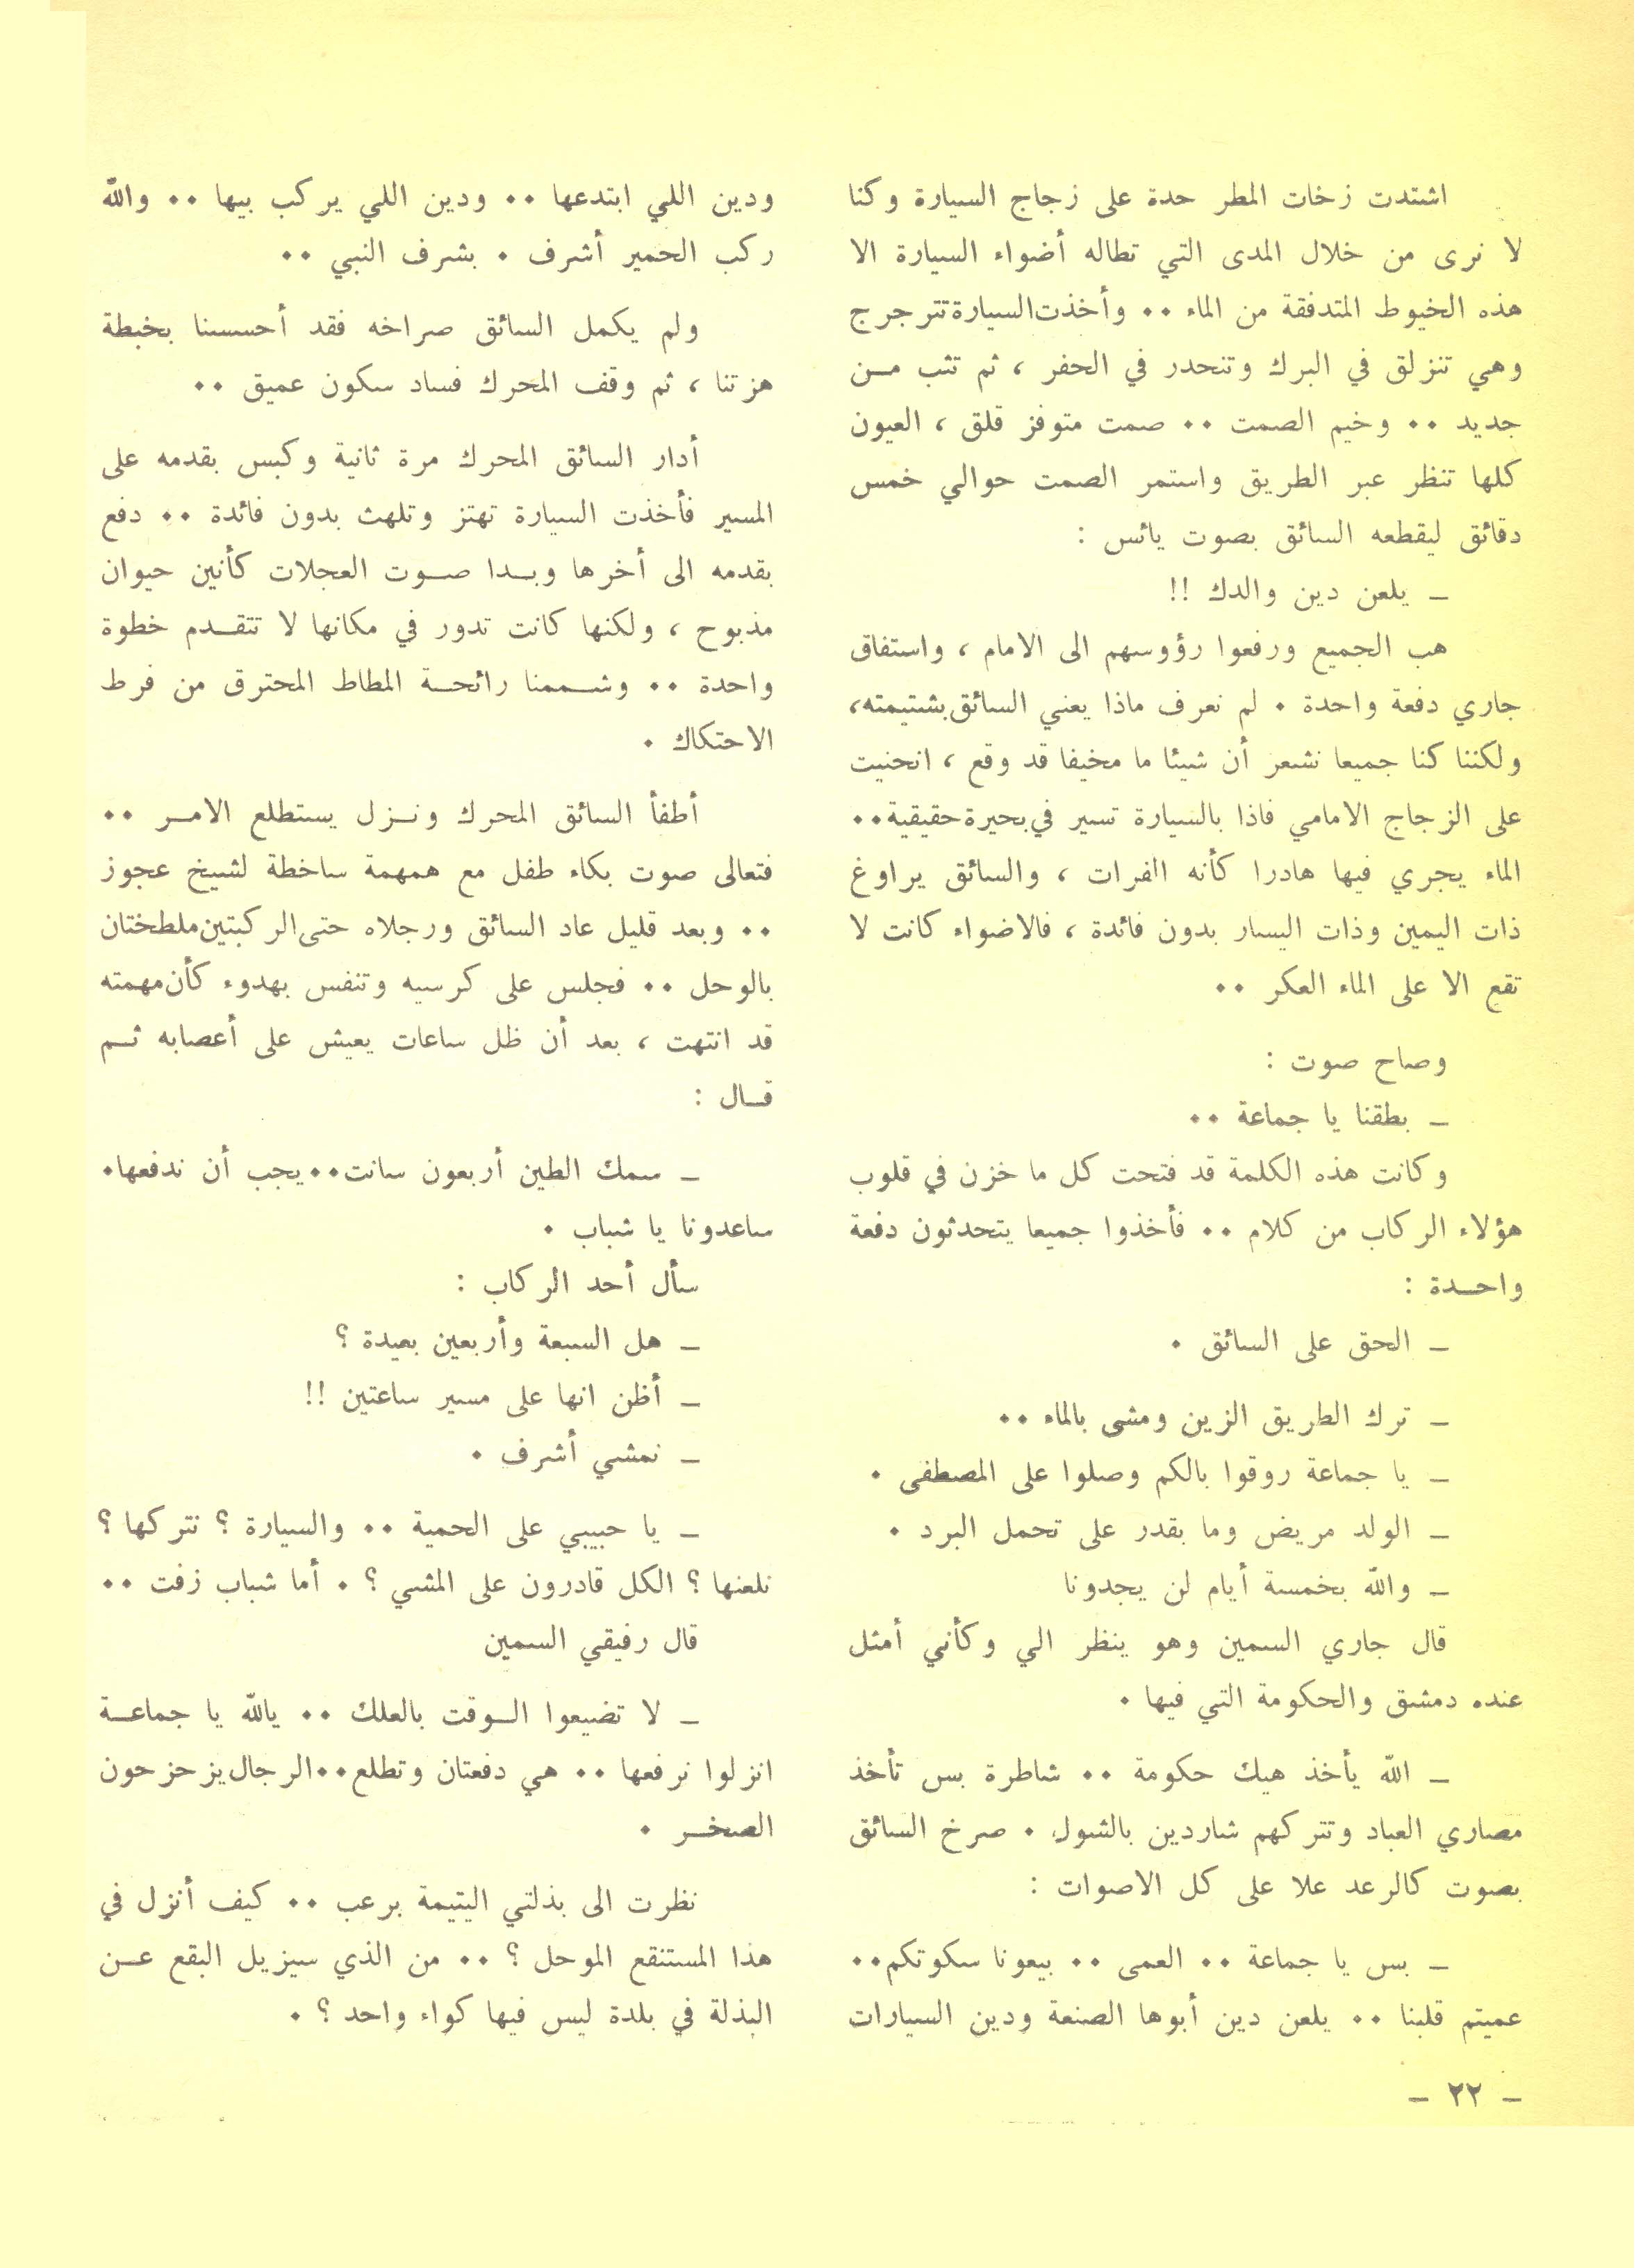 اشتدت زخات المطر حدة على زجاج السيارة وكنا
لا نرى من خلال المدى التي تطاله أضواء السيارة الا
هذه الخيوط المتدفقة من الماء ٠٠ وأخذت السيارة تترجرج
وهي تنزلق في البرك وتنحدر في الحفر ، ثم تثب مـن
جديد ٠٠ وخيم الصمت ٠٠ صمت متوفز قلق ، العيون
كلها تنظر عبر الطريق واستمر الصمت حوالي خمس
دقائق ليقطعه السائق بصوت يائس :
ـ يلعن دين والدك !!
هب الجميع ورفعوا رؤوسهم الى الامام ، واستفاق
جاري دفعة واحدة ٠ لم نعرف ماذا يعني السائق بشتيمته،
ولكننا كنا جميعا نشعر أن شيئا ما مخيفا قد وقع ، انحنيت
على الزجاج الامامي فاذا بالسيارة تسير في بحيرة حقيقية٠٠
الماء يجري فيها هادرا كأنه الفرات ، والسائق يراوغ
ذات اليمين وذات اليسار بدون فائدة ، فالاضواء كانت لا
تقع الا على الماء العكر ٠٠
وصاح صوت :
ـ بطقنا يا جماعة ٠٠
وكانت هذه الكلمة قد فتحت كل ما خزن في قلوب
هؤلاء الركاب من كلام ٠٠ فأخذوا جميعا يتحدثون دفعة
واحـدة :
ـ الحق على السائق ٠
ـ ترك الطريق الزين ومشى بالماء ٠٠
ـ يا جماعة روقوا بالكم وصلوا على المصطفى ٠
ـ الولد مريض وما بقدر على تحمل البرد ٠
ـ والله بخمسة أيام لن يجدونا
قال جاري السمين وهو ينظر الي وكأني أمثل
عنده دمشق والحكومة التي فيها ٠
ـ الله يأخذ هيك حكومة ٠٠ شاطرة بس تأخذ
مصاري العباد وتتركهم شاردين بالشول ٠ صرخ السائق
بصوت كالرعد علا على كل الاصوات :
ـ بس يا جماعة ٠٠ العمى ٠٠ بيعونا سكوتكم٠٠
عميتم قلبنا ٠٠ يلعن دين أبوها الصنعة ودين السيارات
ودين اللي ابتدعها ٠٠ ودين اللي يركب بيها ٠٠ والله
ركب الحمير أشرف ٠ بشرف النبي ٠٠
ولم يكمل السائق صراخه فقد أحسسنا بخبطة
هزتنا ، ثم وقف المحرك فساد سكون عميق ٠٠
أدار السائق المحرك مرة ثانية وكبس بقدمه على
المسير فأخذت السيارة تهتز وتلهث بدون فائدة ٠٠ دفع
بقدمه الى أخرها وبـدا صـوت العجلات كأنين حيوان
مذبوح ، ولكنها كانت تدور في مكانها لا تتقـدم خطوة
واحدة ٠٠ وشـممنا رائحـة المطاط المحترق من فرط
الاحتكاك ٠
أطفأ السائق المحرك ونـزل يستطلع الامـر ٠٠
فتعالى صوت بكاء طفل مع همهمة ساخطة لشيخ عجوز
٠٠ وبعد قليل عاد السائق ورجلاه حتى الركبتين ملطختان
بالوحل ٠٠ فجلس على كرسيه وتنفس بهدوء كأن مهمته
قد انتهت ، بعد أن ظل ساعات يعيش على أعصابه ثـم
قـال :
ـ سمك الطين أربعون سانت٠٠يجب أن ندفعها٠
ساعدونا يا شباب ٠
سأل أحد الركاب :
ـ هل السبعة وأربعين بعيدة ؟
ـ أظن انها على مسير ساعتين !!
ـ نمشي أشرف ٠
ـ يا حبيبي على الحمية ٠٠ والسيارة ؟ نتركها ؟
نلعنها ؟ الكل قادرون على المشي ؟ ٠ أما شباب زفت ٠٠
قال رفيقي السمين
ـ لا تضيعوا الـوقت بالعلك ٠٠ يالله يا جماعـة
انزلوا نرفعها ٠٠ هي دفعتان وتطلع٠٠الرجال يزحزحون
الصخـر ٠
نظرت الى بذلتي اليتيمة برعب ٠٠ كيف أنزل في
هذا المستنقع الموحل ؟ ٠٠ من الذي سيزيل البقع عـن
البذلة في بلدة ليس فيها كواء واحد ؟ ٠
ـ ٢٢ ـ